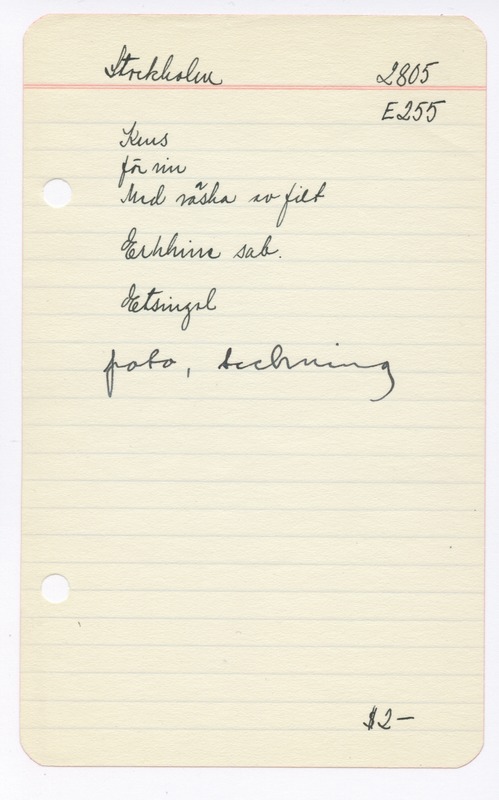 Stockholm 2805
E255
Krus
för vin
Med väska av filt
Erkhine sab.
Etsingol
foto, teckning
$2-